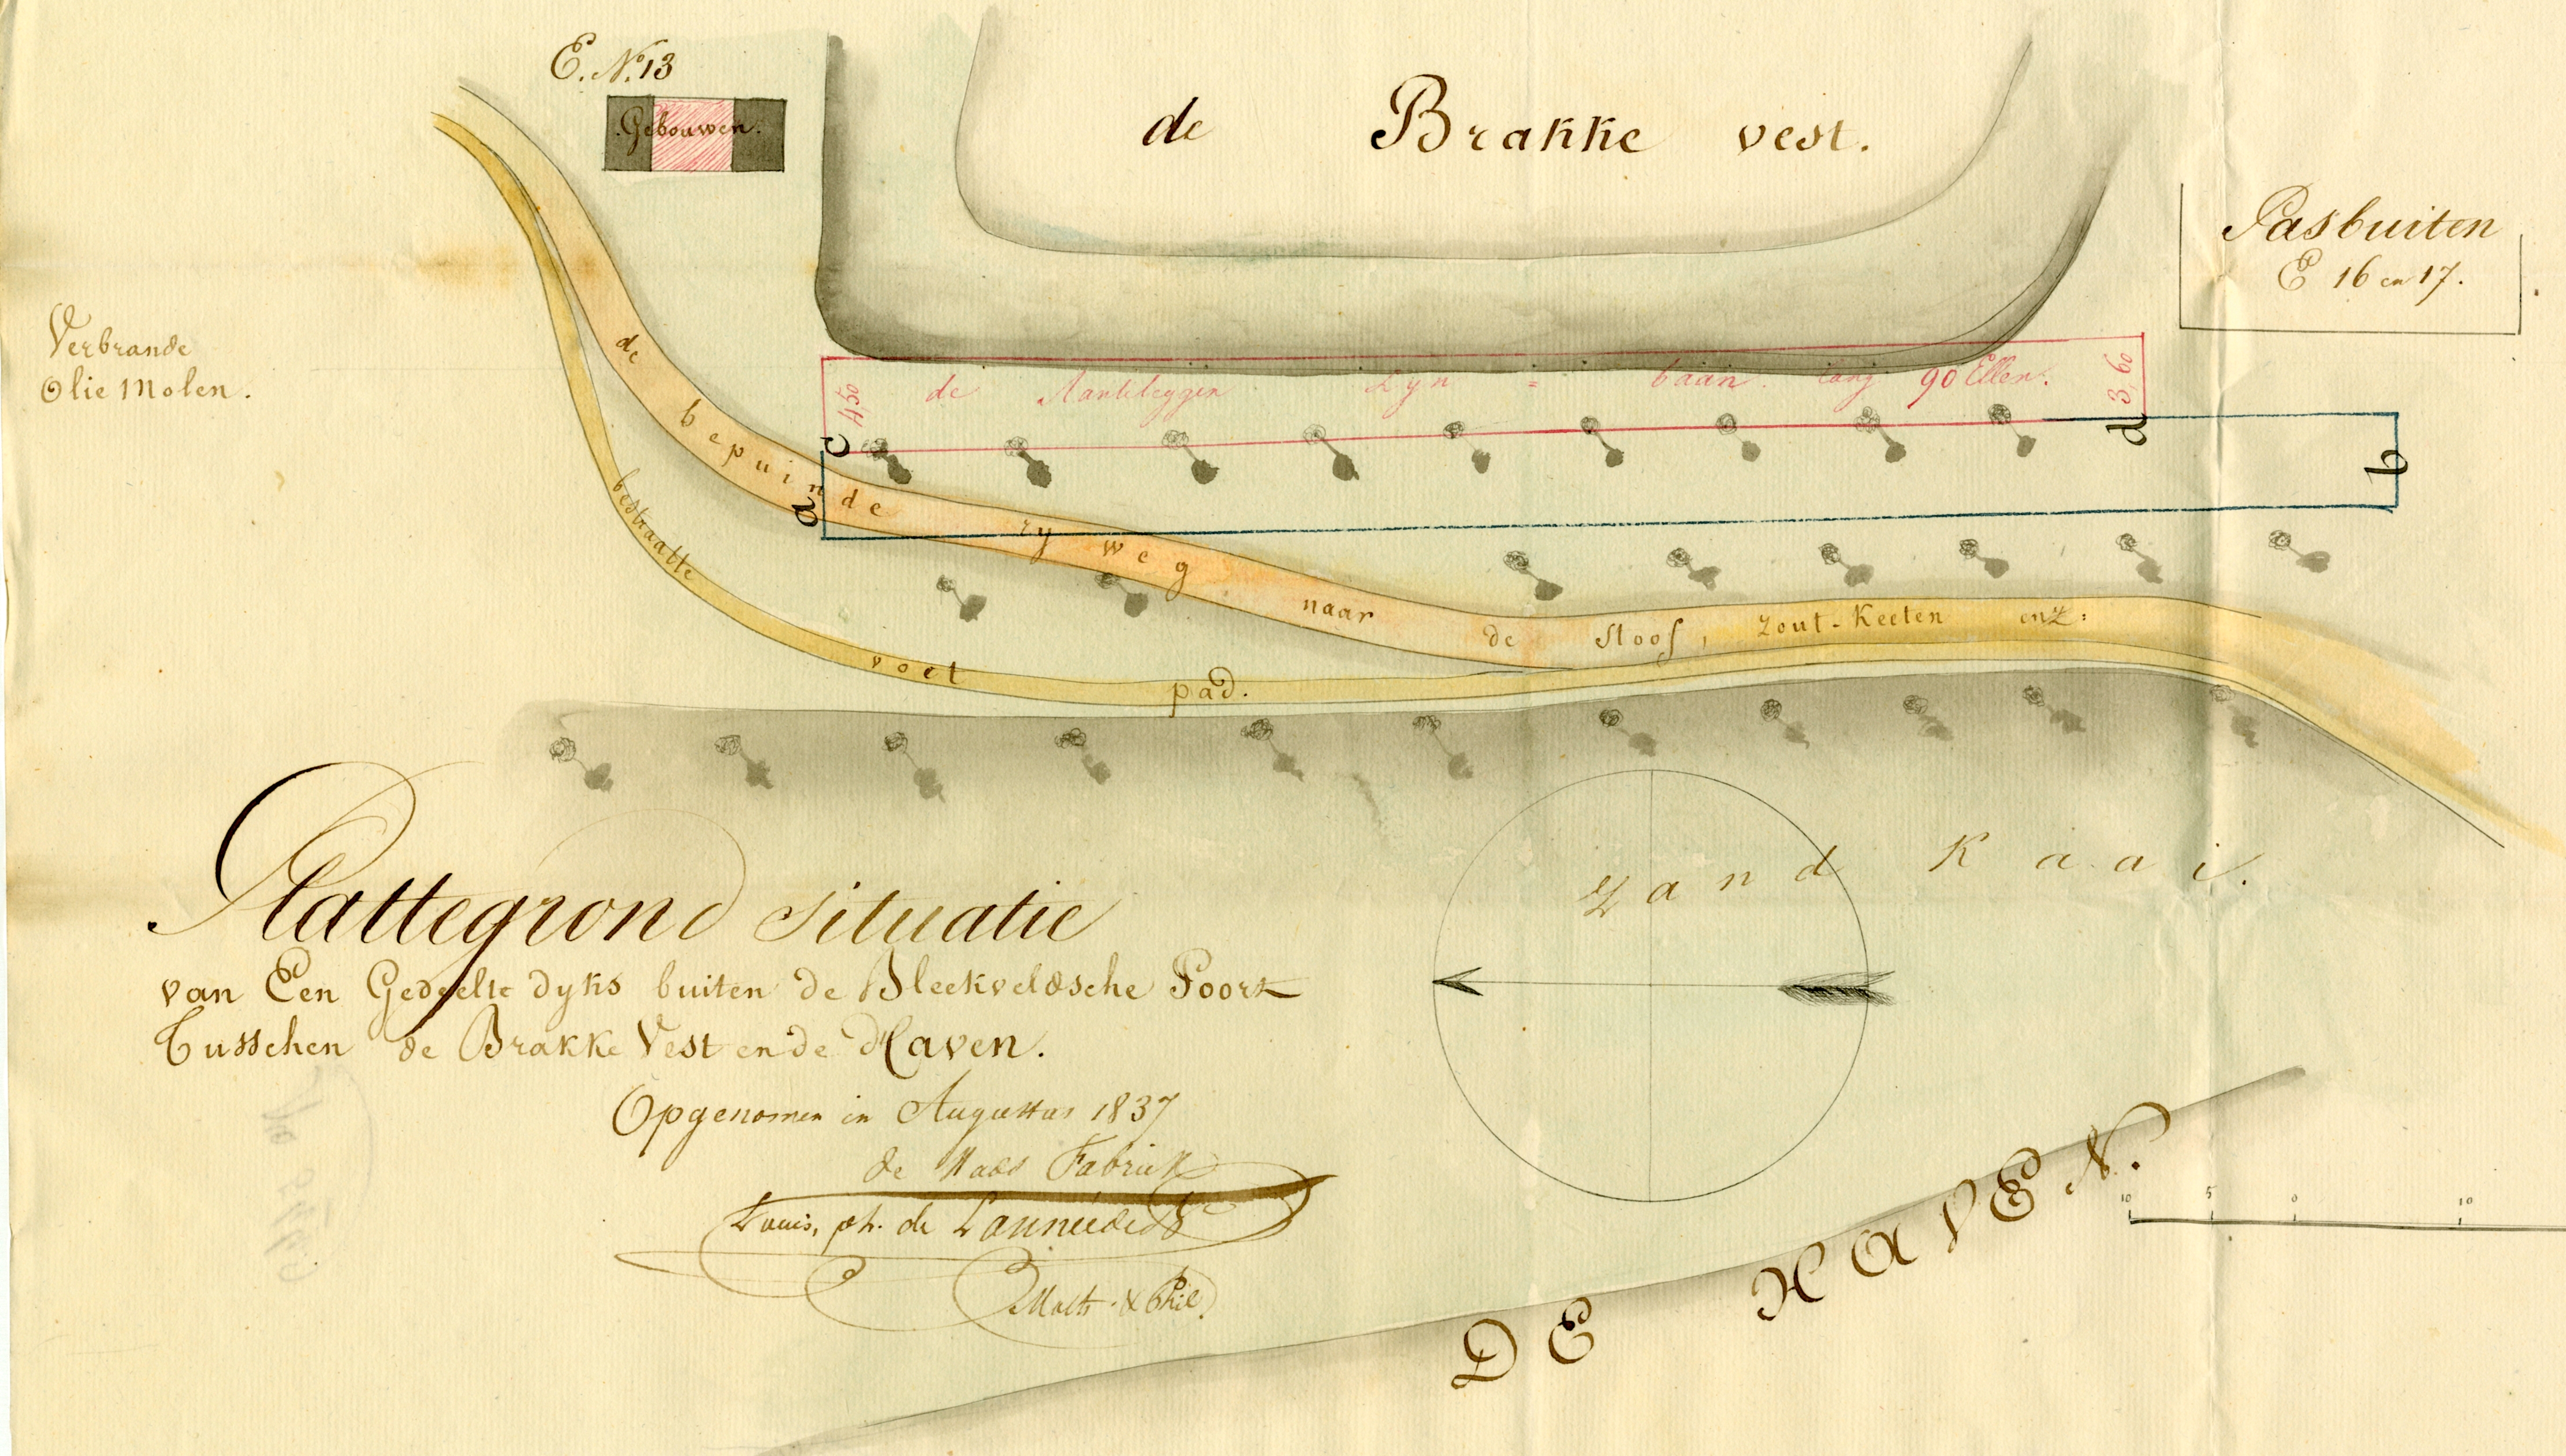 E. No. 13
Gebouwen.
de Brakke vest.
Pasbuiten
E 16 en 17.
Verbrande
Olie Molen.
4,50 de Aanteleggen Lyn = baan lang 90 Ellen. 3,60
c
d
a
b
de bepuinde ry weg naar de Stoof, Zout-Keeten enz:
bestraatte voet pad.
Zand Kaai.
Plattegrond Situatie
van Een Gedeelte dyks buiten de Bleekveldsche Poort
Tusschen de Brakke Vest en de Haven.
Opgenomen in Augustus 1837
de Stads Fabriek
Louis, ph. de
Math. & Phil.
DE HAVEN.
10 5 0 10